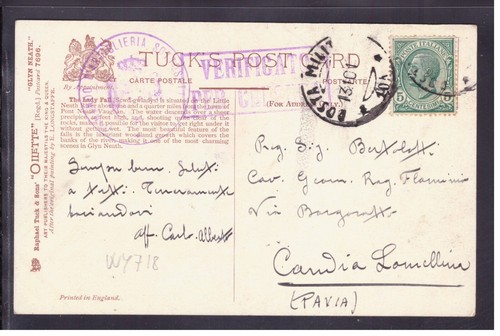 TUCK'S POST CARD
CARTE POSTALE
POSTKARTE
(FOR ADDRESS ONLY.)
By Appointment.
VERIFICATO
PER CENSURA
POSTA MILIT
POSTE ITALIANE
CENTESIMI
The Lady Fall. Sgwd
is situated on the Little
Neath River about one and a quarter miles from
Post Neath Vaughan. The water descends
precipice 20 feet high, and, shooting quite clear of the
rocks, makes it possible for the visitor to get right under it
without getting wet. The most beautiful feature of the
falls is the luxuriant woodland growth which covers the
banks of the
making it one of the most charming
scenes in Glyn Neath.
Sempre bene. Saluti
a tutti. Teneramente
baciandovi
aff. Carlo Alberto
WY718
Printed in England.
Reg. Sig. Bertolotti
Cav. Geom. Rag. Flaminio
Via
Candia Lomellina
(PAVIA)
Raphael Tuck & Sons' "OILETTE" (Regd.) Postcard 7696. "GLYN NEATH."
ART PUBLISHERS TO THEIR MAJESTIES THE KING & QUEEN.
After the original painting by E. LONGSTAFFE.